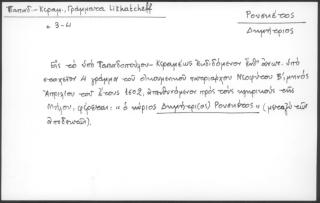 Παπαδ.-Κεραμ., Γράμματα Likhatcheff
σ. 3-4
Ρουσκέτος
Δημήτριος
Εἰς τὸ ὑπὸ Παπαδοπούλου-Κεραμέως ἐκδιδόμενον ἔνθ' ἄνωτ. ὑπὸ
στοιχεῖον Η γράμμα τοῦ οἰκουμενικοῦ πατριάρχου Νεοφύτου Β', μηνὸς
Ἀπριλίου τοῦ ἔτους 1602, ἀπευθυνόμενον πρὸς τοὺς κληρικοὺς τῆς
Μήλου, φέρεται: "ὁ κύριος Δημήτρι(ος) Ρουσκέτος" (μεταξὺ τῶν
ἀποδεκτῶν).